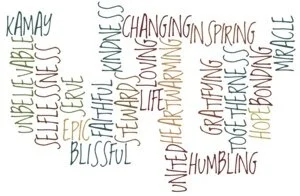 KAMAY
UNBELIEVABLE
SELFLESSNESS
SERVE
EPIC
BLISSFUL
FAITHFUL
KINDNESS
STEWARD
CHANGING
LOVING
LIFE
HEARTWARMING
UNITED
INSPIRING
GRATIFYING
HUMBLING
TOGETHERNESS
HOPE
BONDING
MIRACLE